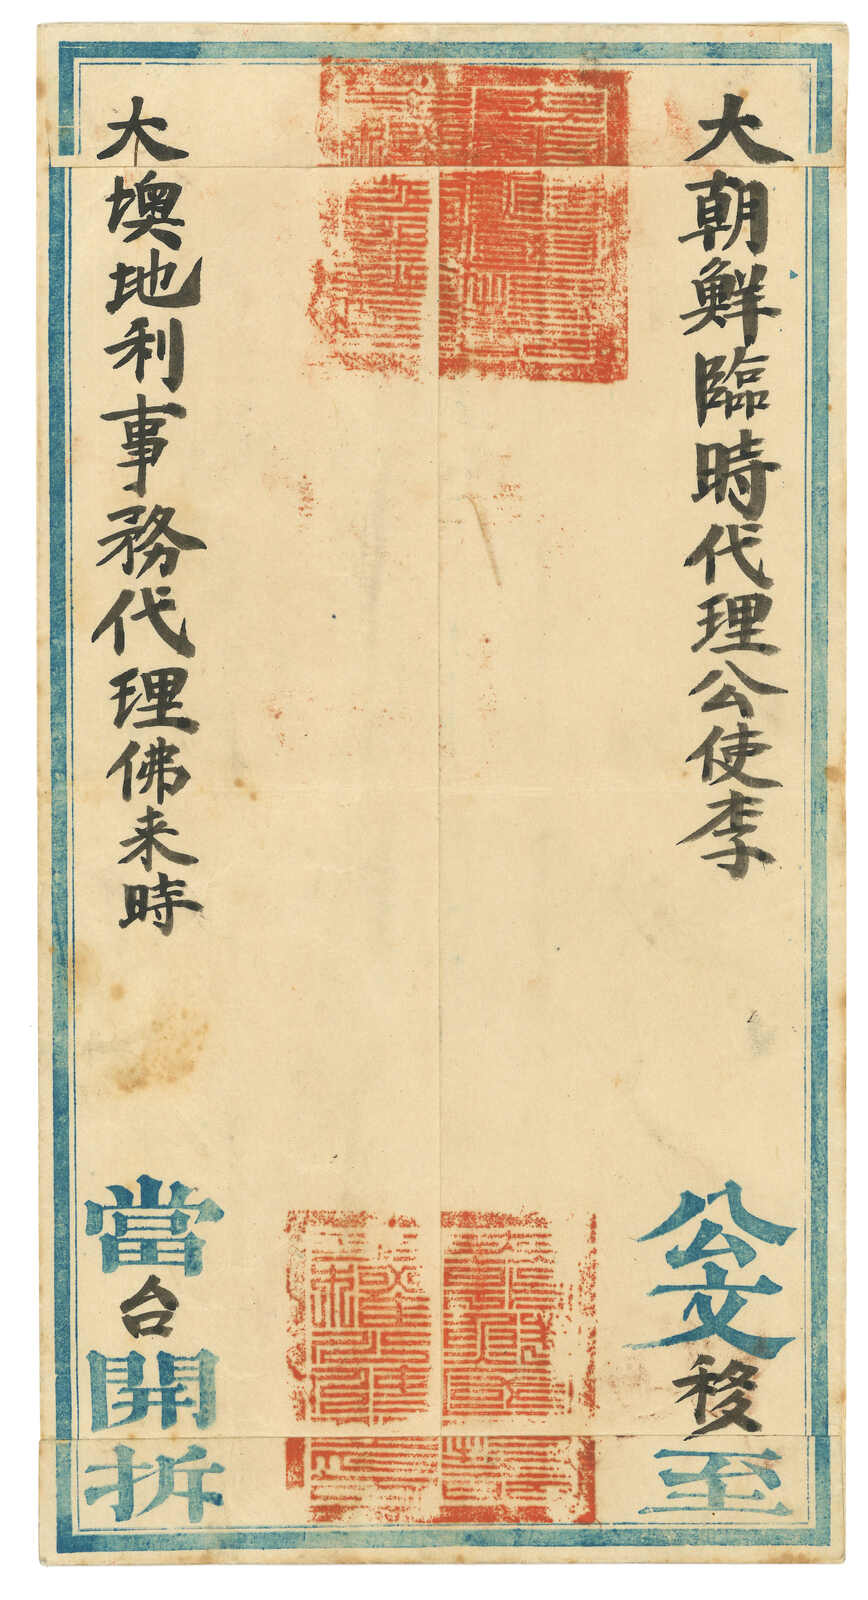 大朝鮮臨時代理公使李
公文移至
大墺地利事務代理佛来時
當台開拆